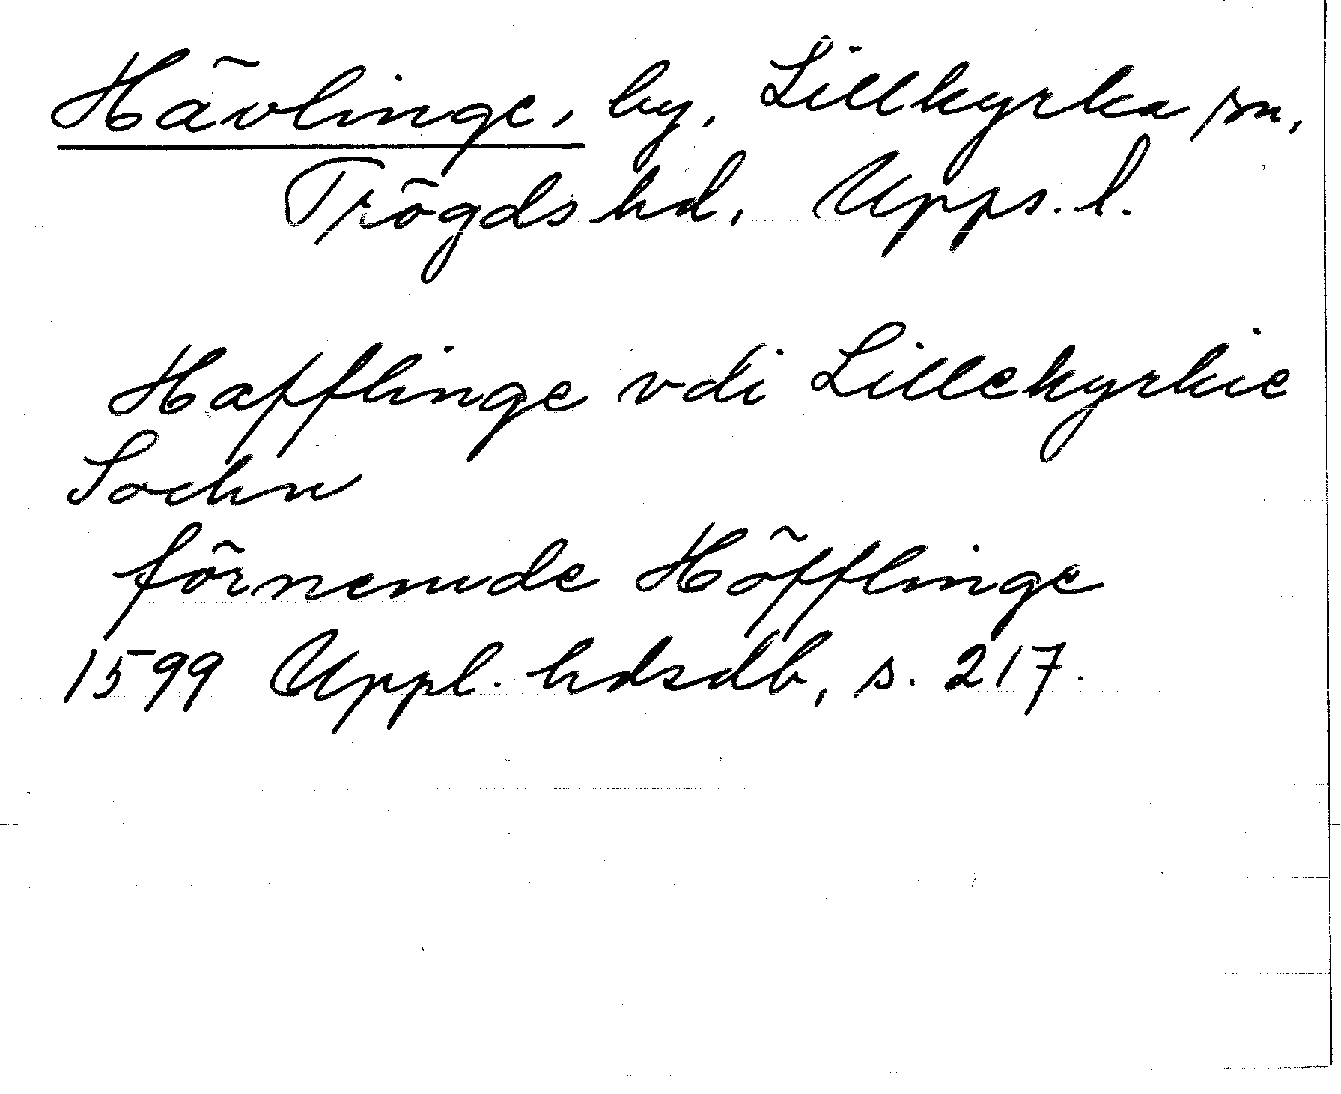 Hävlinge, by, Lillkyrka sn,
Trögds hd, Upps. l.
Hafflinge vdi Lillekyrkie
Sochn
förnemde Höfflinge
1599 Uppl. hdsdb, s. 217.